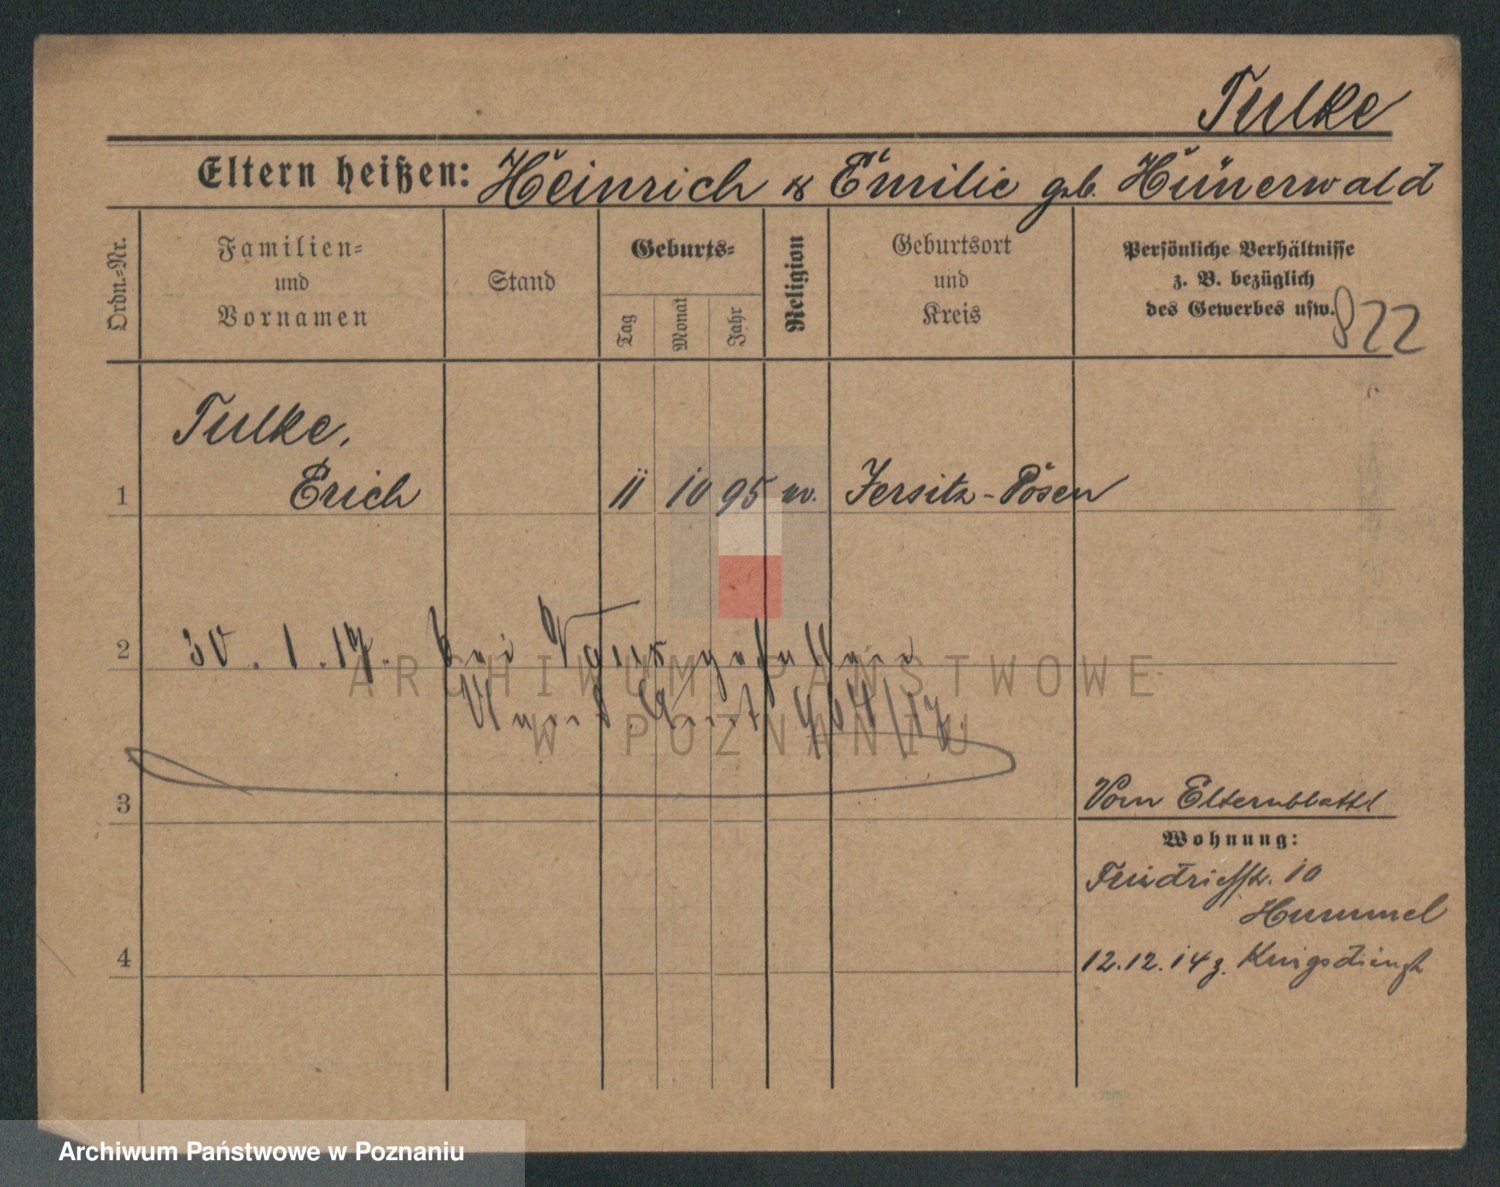 Tulke
Eltern heißen: Heinrich & Emilie geb. Hünerwald
Ordn.-Nr.
Familien-
und
Vornamen
Stand
Geburts-
Tag
Monat
Jahr
Religion
Geburtsort
und
Kreis
Persönliche Verhältnisse
z. B. bezüglich
des Gewerbes usw.
822
Tulke,
1 Erich 11 10 95 ev. Jersitz-Posen
2 30. 1. 17. bei gefallen
464/17.
ARCHIWUM PAŃSTWOWE
W POZNANIU
3
Vom Elternblatt
Wohnung:
Friedrichstr. 10
Hummel
4
12.12.14 z. Kriegsdienst
Archiwum Państwowe w Poznaniu